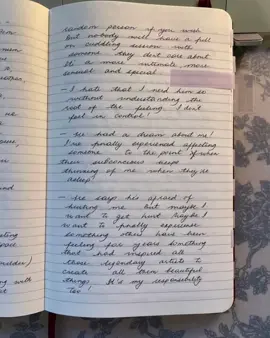 random person if you wish
but nobody will have a full
on cuddling session with
someone they dont care about
It's a more intimate more
sensual and special
- I hate that I need him so
without understanding the
root of the feeling. I don't
feel in control!
- He had a dream about me!
I've finally experienced affecting
someone to the point of when
their subconscious keeps
thinking of me when they're
asleep
- He says his afraid of
hurting me but maybe I
want to get hurt. Maybe I
want to finally experience
something others have been
feeling for years. Something
that had inspired all
those legendary artists to
create all them beautiful
things. It's my responsibility
too!